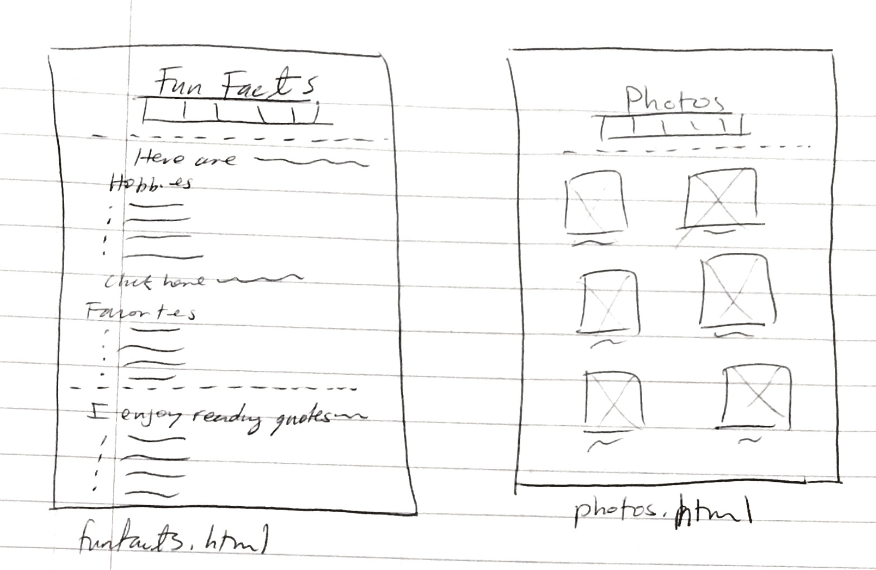 Fun Facts
Here are
Hobbies
Click here
Favorites
I enjoy reading quotes
funfacts.html
Photos
photos.html